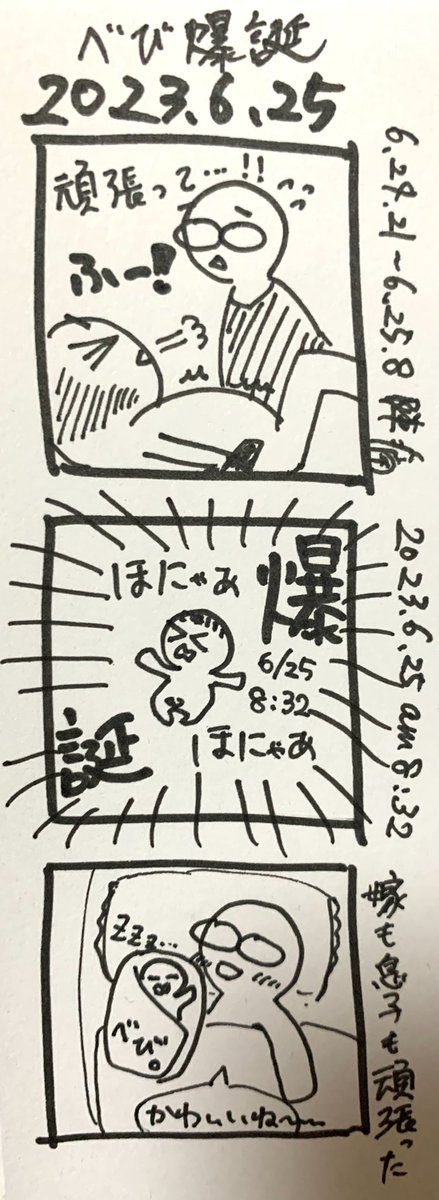 べび爆誕
2023.6.25
頑張って…!!
ふー!!
6.24.21〜6.25.8 陣痛
ほにゃあ
爆
6/25
8:32
誕
ほにゃあ
2023.6.25 am 8:32
ZZZ...
べび。
かわいいね〜〜
嫁も息子も頑張った